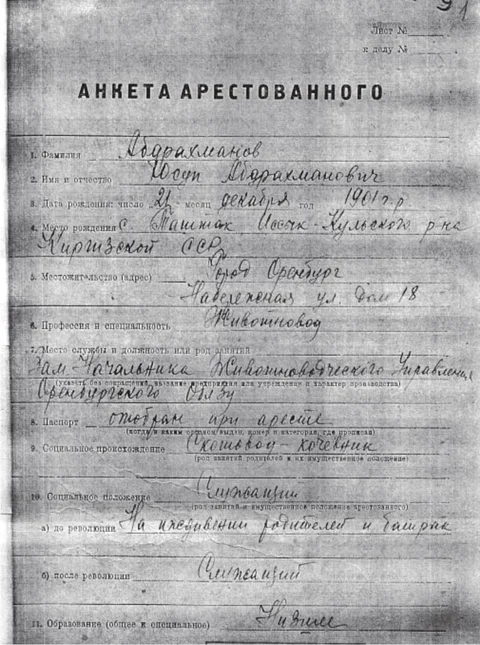 91
Лист №
к делу №
АНКЕТА АРЕСТОВАННОГО
1. Фамилия Абдрахманов
2. Имя и отчество Юсуп Абдрахманович
3. Дата рождения: число 27 месяц декабря год 1901 г.р.
4. Место рождения с. Таштак Иссык-Кульского р-на
Киргизской ССР
5. Местожительство (адрес) Город Оренбург
Набережная ул. Дом 18
6. Профессия и специальность Животновод
7. Место службы и должность или род занятий
Зам Начальника Животноводческого Управления
(указать без сокращений, название предприятия или учреждения и характер производства)
Оренбургского ОблЗу
8. Паспорт отобран при аресте
(когда и каким органом выдан, номер и категория, где прописан)
9. Социальное происхождение Скотовод-кочевник
(род занятий родителей и их имущественное положение)
10. Социальное положение Служащий
(род занятий и имущественное положение арестованного)
а) до революции На иждивении родителей и батрак
б) после революции Служащий
11. Образование (общее и специальное) Низшее